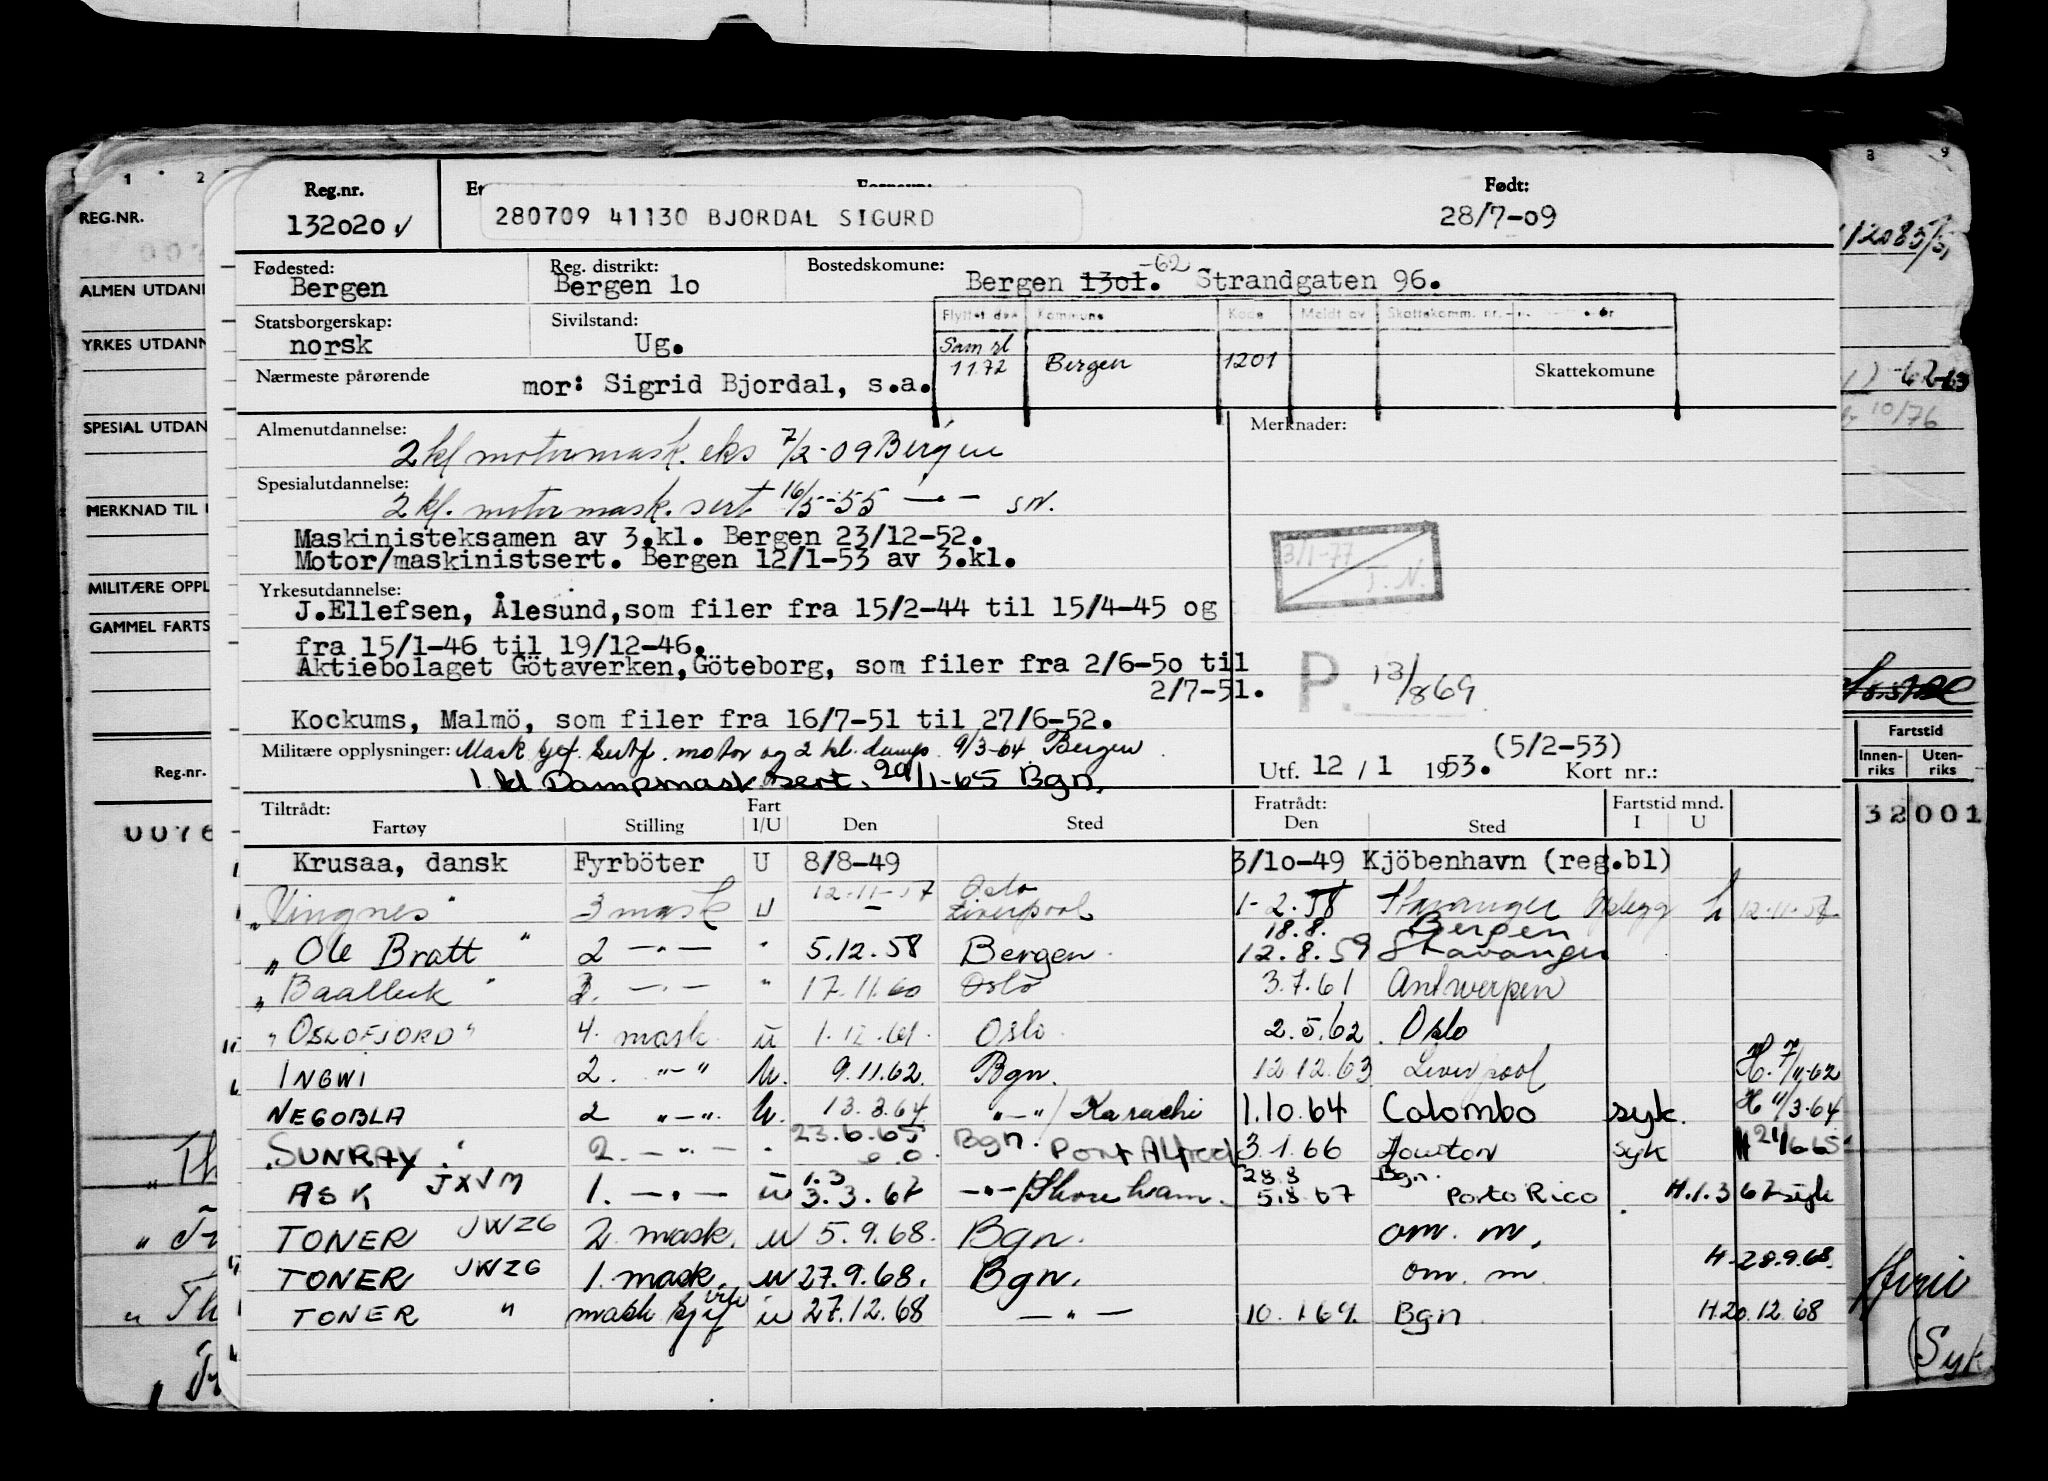 Reg.nr.
132020
280709 41130 BJORDAL SIGURD
Født:
28/7-09
Fødested:
Bergen
Reg. distrikt:
Bergen 10
Bostedskomune:
Bergen 1301. -62 Strandgaten 96.
Statsborgerskap:
norsk
Sivilstand:
Ug.
Flyttet den Kommune Kode Meldt av Skattekomm. nr.
Sam rl
1172 Bergen 1201
Skattekomune
Nærmeste pårørende
mor: Sigrid Bjordal, s.a.
Almenutdannelse:
2 kl motormask. eks 7/2-09 Bergen
Merknader:
Spesialutdannelse:
2 kl. motormask. sert 16/5-55 — " — SN.
Maskinisteksamen av 3.kl. Bergen 23/12-52.
Motor/maskinistsert. Bergen 12/1-53 av 3.kl.
3/1-77
T. N.
Yrkesutdannelse:
J.Ellefsen, Ålesund,som filer fra 15/2-44 til 15/4-45 og
fra 15/1-46 til 19/12-46.
Aktiebolaget Götaverken,Göteborg, som filer fra 2/6-50 til
2/7-51.
P. 13/869
Kockums, Malmö, som filer fra 16/7-51 til 27/6-52.
Militære opplysninger: Mask kjef. Sertf. motor og 2 kl. damp. 9/3-64 Bergen
1 kl Dampmask sert. 29/1-65 Bgn.
Utf. 12 / 1 1953. (5/2-53) Kort nr.:
Tiltrådt: Fart Fratrådt: Fartstid mnd.
Fartøy Stilling I/U Den Sted Den Sted I U
Krusaa, dansk Fyrböter U 8/8-49 3/10-49 Kjöbenhavn (reg.bl)
"Vingnes" 3 mask U 12-11-57 Oslo Liverpool 1-2.58 Stavanger Oplegg h 12-11-57
18.8. Bergen
"Ole Bratt" 2 — " — " 5.12.58 Bergen 12.8.59 Stavanger
"Baalbek" 2. — " — " 17.11.60 Oslo 3.7.61 Antwerpen
"OSLOFJORD" 4. mask u 1.12.61. Oslo. 2.5.62. Oslo
INGWI 2. "—" u. 9.11.62. Bgn. 12 12.63 Liverpool H. 7/11-62
NEGOBLA 2 "—" u. 13.3.64 "—" / Karachi 1.10.64 Colombo syk. H 11/3-64
"SUNRAY" 2. — " — " 23.6.65 Bgn. / Port Alfred 3.1.66 syk H 21/6 65
ASK JXVM 1. — " — u 1.3 3.3.67 — " — / Shoreham. 28.8 5.8.67 Bgn. Porto Rico H.1.3 67 syk
TONER JWZG 2. mask. u 5.9.68. Bgn. om. m.
TONER JWZG 1. mask. u 27.9.68. Bgn. om. m. H-28.9.68.
TONER " mask kjef u 27.12.68 — " — 10.1 69. Bgn. H.20.12.68
1 2
REG.NR.
ALMEN UTDAN
YRKES UTDANN
SPESIAL UTDAN
MERKNAD TIL
MILITÆRE OPPL
GAMMEL FARTS
Reg.nr.
0076
8 9
10/76
Fartstid
Innen-riks Uten-riks
32001
(Syk